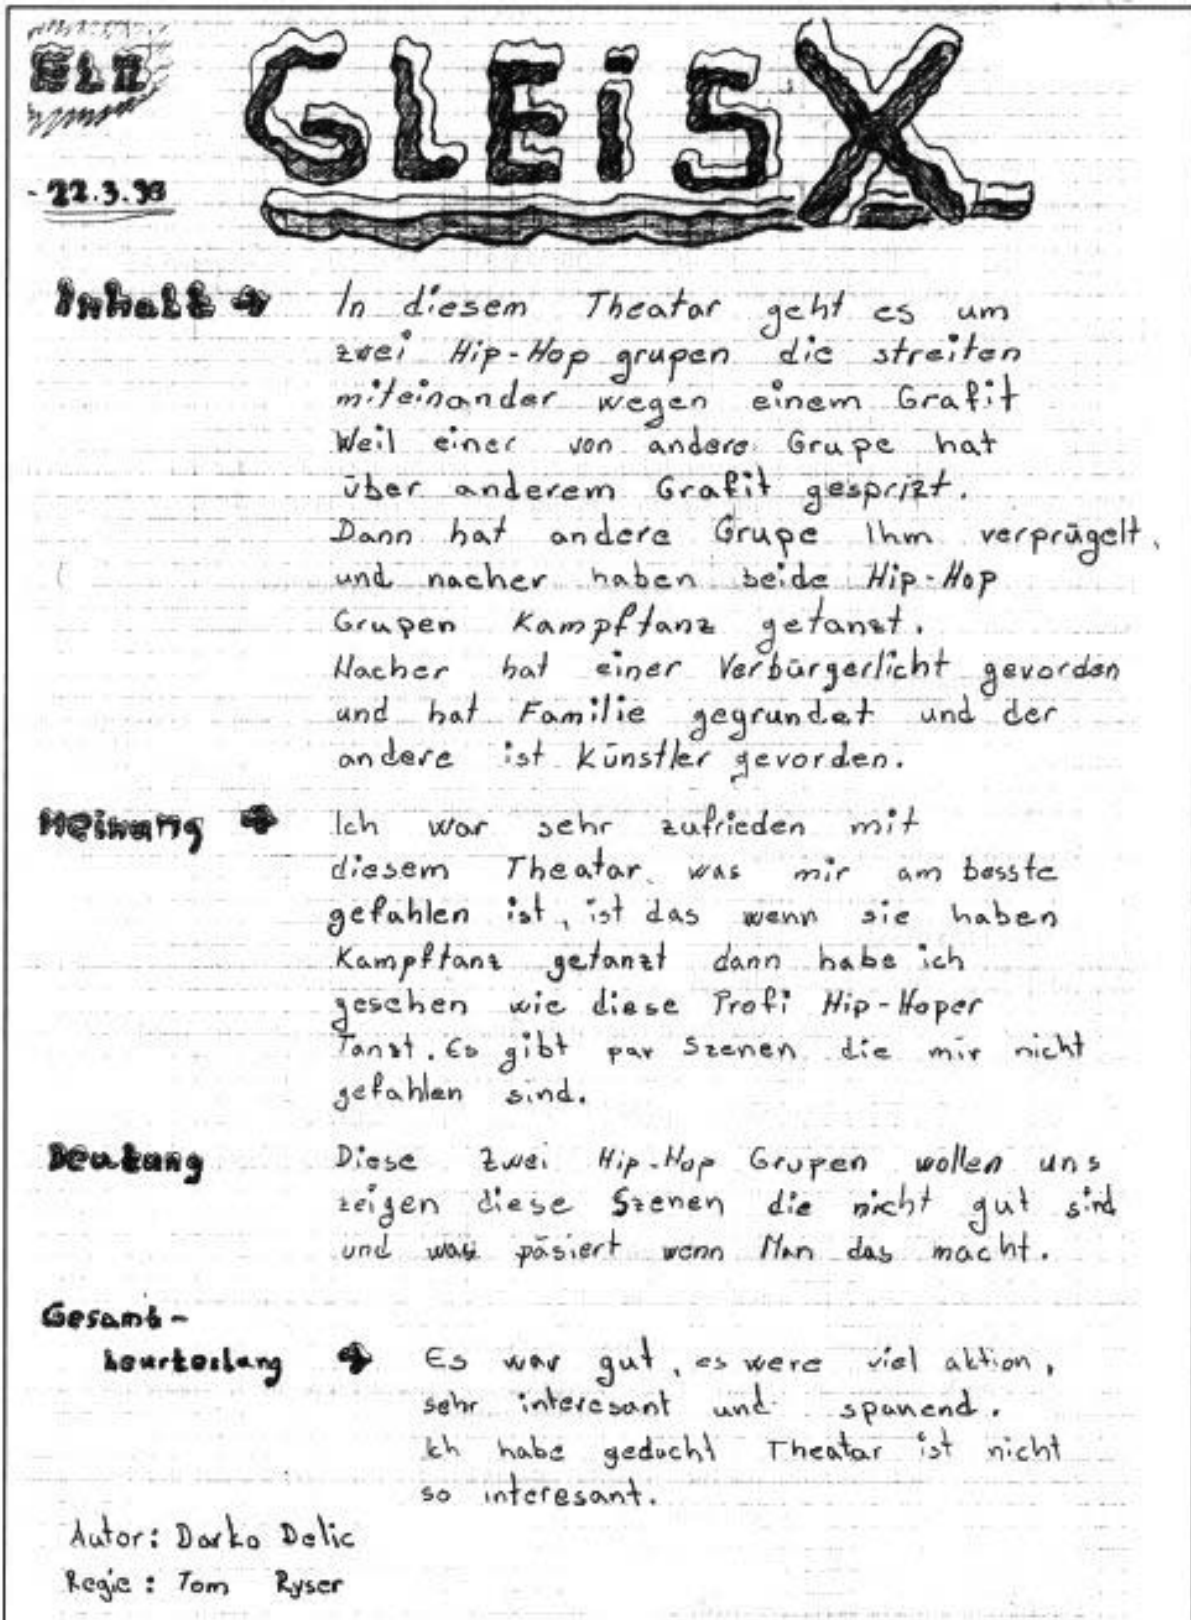 GLEiSX
Inhalt
In diesem Theatar geht es um
zwei Hip-Hop grupen die streiten
miteinander wegen einem Grafit
Weil einer von andere Grupe hat
über anderem Grafit gesprizt.
Dann hat andere Grupe Ihm verprügelt,
und nacher haben beide Hip-Hop
Grupen Kampftanz getanzt.
Nacher hat einer Verbürgerlicht gevorden
und hat Familie gegrundet und der
andere ist Künstler gevorden.
Meinung
Ich war sehr zufrieden mit
diesem Theatar was mir am besste
gefahlen ist, ist das wenn sie haben
Kampftanz getanzt dann habe ich
gesehen wie diese Profi Hip-Hoper
Tanzt. Es gibt par Szenen die mir nicht
gefahlen sind.
Deutung
Diese zwei Hip-Hop Grupen wollen uns
zeigen diese Szenen die nicht gut sind
und was päsiert wenn Man das macht.
Gesamt-
beurteilung
Es war gut, es were viel aktion,
sehr interesant und spanend.
Ich habe gedacht Theatar ist nicht
so interesant.
Autor: Darko Delic
Regie: Tom Ryser